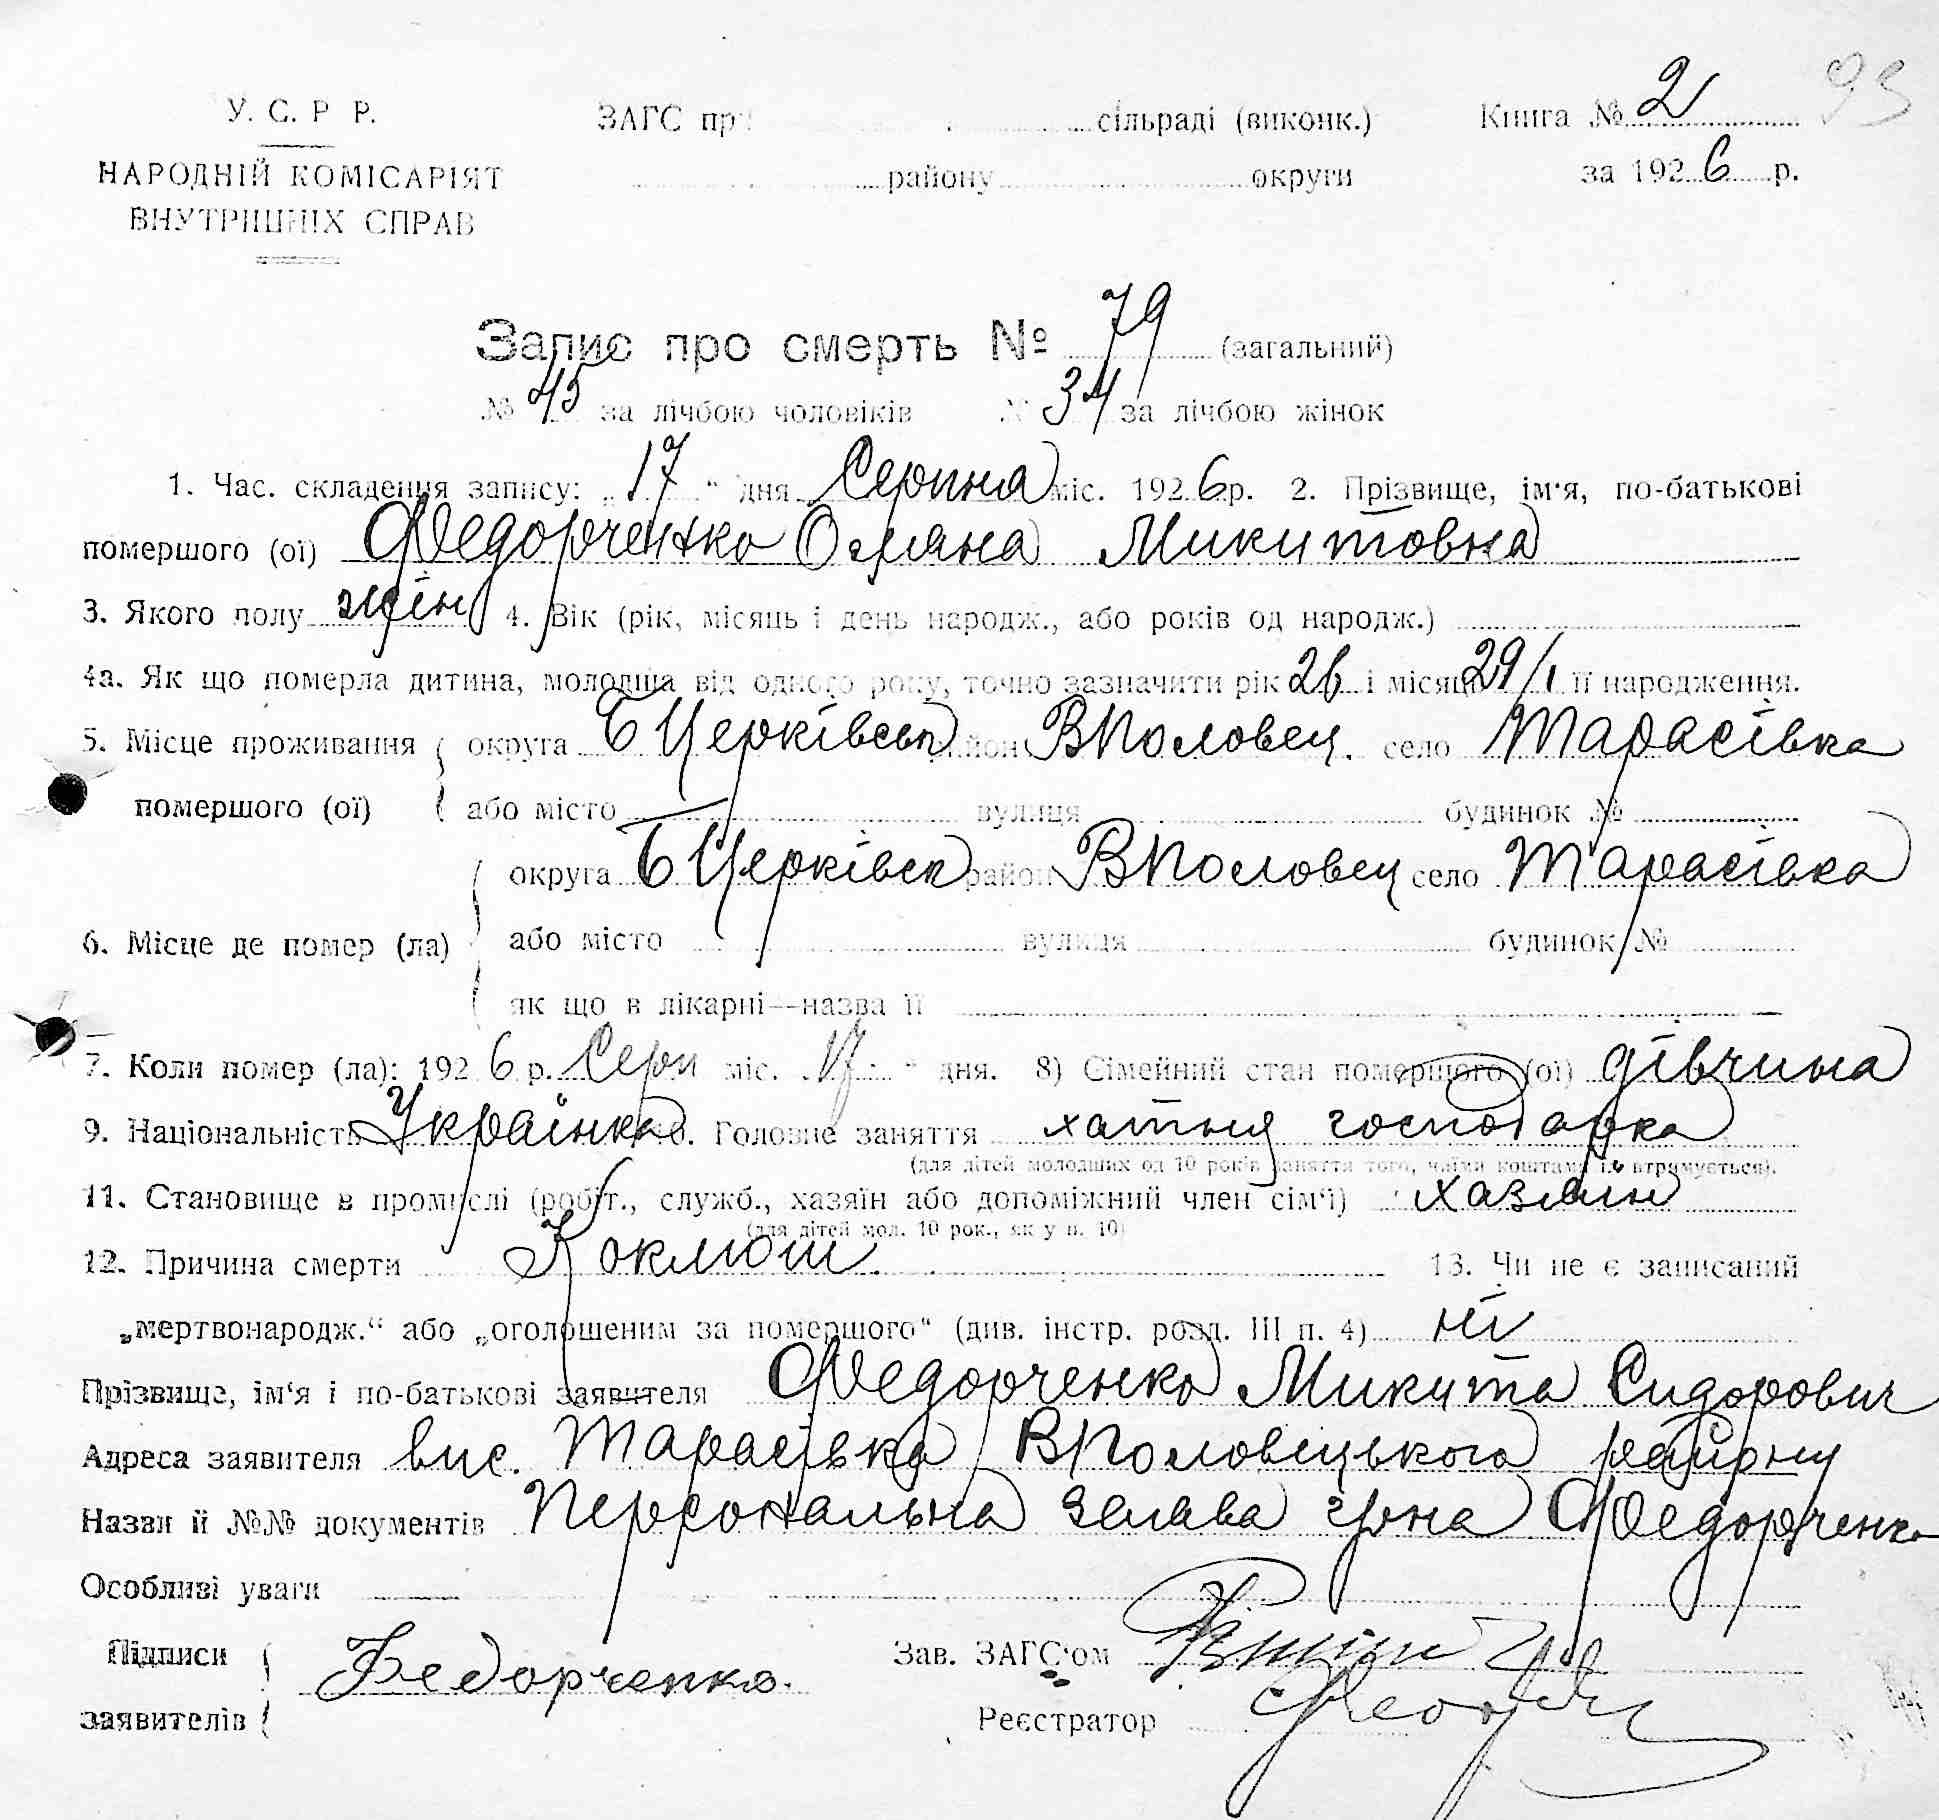 У. С. Р Р.
НАРОДНІЙ КОМІСАРІЯТ
ВНУТРІШНІХ СПРАВ
ЗАГС при сільраді (виконк.)
району округи
Книга № 2 93
за 1926 р.
Запис про смерть № 79 (загальний)
№ 45 за лічбою чоловіків № 34 за лічбою жінок
1. Час. складення запису: „17" дня Серпня міс. 1926 р. 2. Прізвище, ім'я, по-батькові
помершого (ої) Федорченко Оляна Микитовна
3. Якого полу жін 4. Вік (рік, місяць і день народж., або років од народж.)
4а. Як що померла дитина, молодша від одного року, точно зазначити рік 26 і місяць 29/I її народження.
5. Місце проживання помершого (ої) округа БЦерківськ район ВПоловец. село Тарасівка
або місто вулиця будинок №
6. Місце де помер (ла) округа БЦерківск район ВПоловец село Тарасівка
або місто вулиця будинок №
як що в лікарні—назва її
7. Коли помер (ла): 1926 р. Серп міс. 17 " дня. 8) Сімейний стан помершого (ої) дівчина
9. Національність Українка 10. Головне заняття хатня господарка
(для дітей молодших од 10 років заняття того, чиїми коштами їх втримується).
11. Становище в промислі (робіт., служб., хазяїн або допоміжний член сім'ї) хазяин
(для дітей мол. 10 рок., як у п. 10)
12. Причина смерти Коклюш. 13. Чи не є записаний
„мертвонародж." або „оголошеним за помершого" (див. інстр. розд. III п. 4) ні
Прізвище, ім'я і по-батькові заявителя Федорченко Микита Сидорович
Адреса заявителя вис. Тарасівка ВПоловецького району
Назви й №№ документів Персональна заява гр-на Федорченко
Особливі уваги
Підписи заявителів Федорченко.
Зав. ЗАГС'ом
Реєстратор